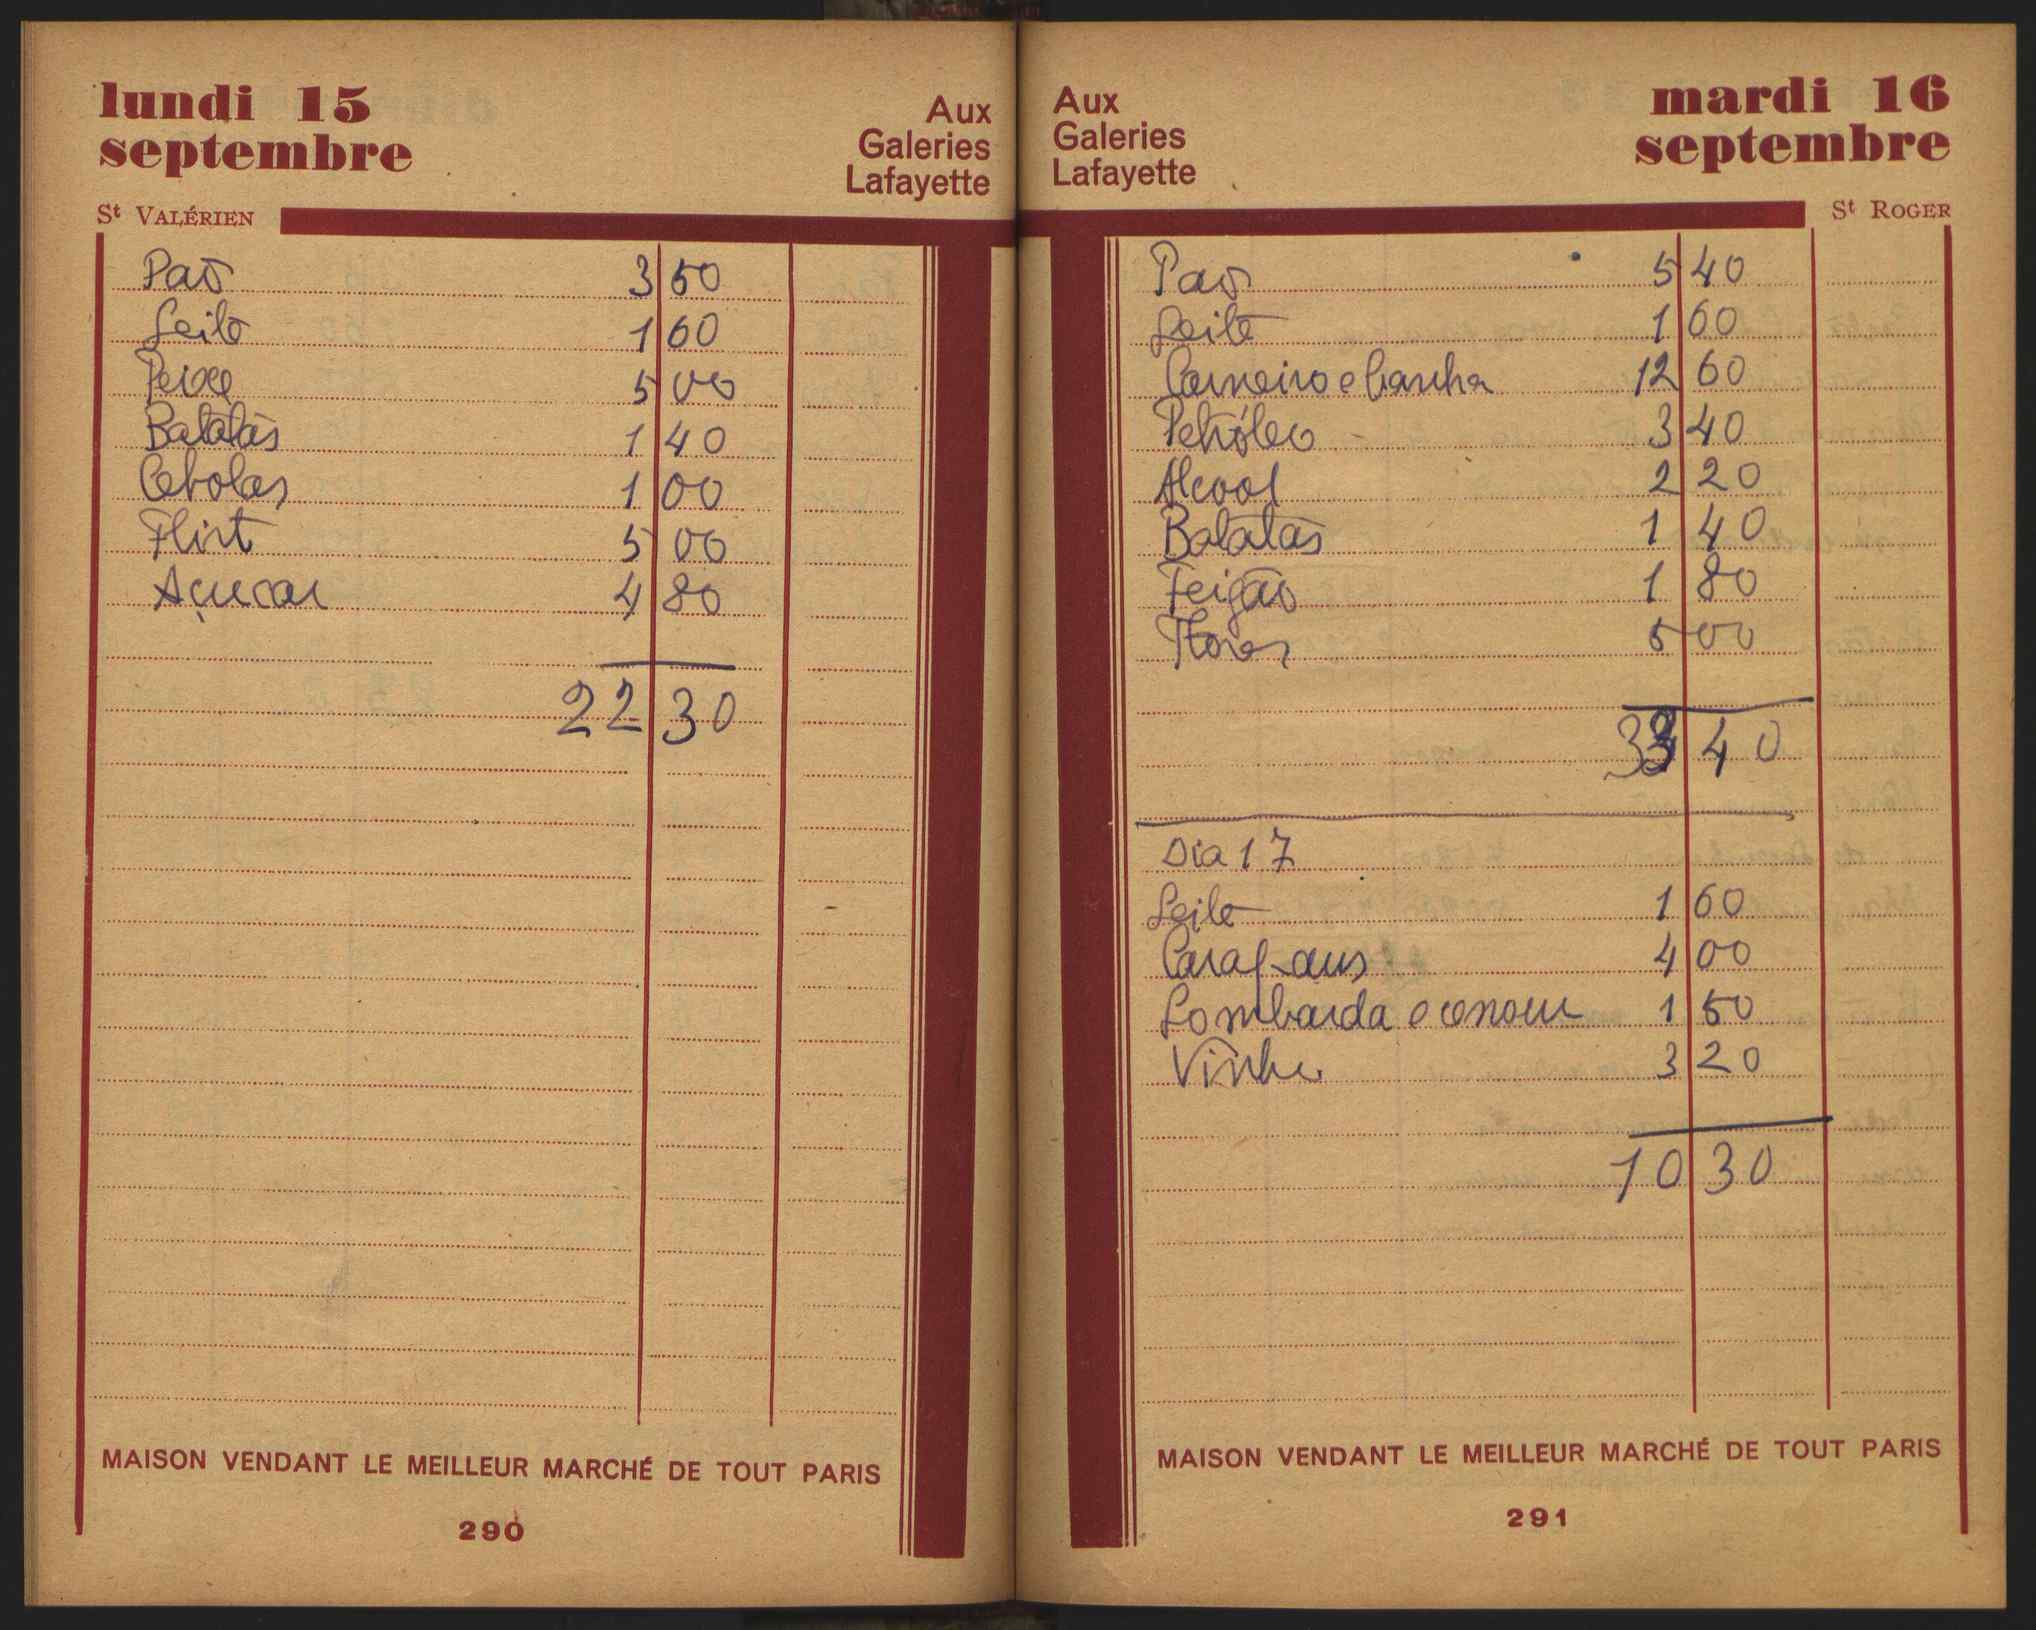 lundi 15
septembre
Aux
Galeries
Lafayette
St VALÉRIEN
Paõ 3 50
Leite 1 60
Peixe 5 00
Batatas 1 40
Cebolas 1 00
Flirt 5 00
Açucar 4 80
22 30
MAISON VENDANT LE MEILLEUR MARCHÉ DE TOUT PARIS
290
Aux
Galeries
Lafayette
mardi 16
septembre
St ROGER
Paõ 5 40
Leite 1 60
Carneiro e banha 12 60
Petróleo 3 40
Alcool 2 20
Batatas 1 40
Feigão 1 80
Flores 5 00
33 40
Dia 17
Leite 1 60
Carapaus 4 00
Lombarda e cenour 1 50
Vinho 3 20
10 30
MAISON VENDANT LE MEILLEUR MARCHÉ DE TOUT PARIS
291